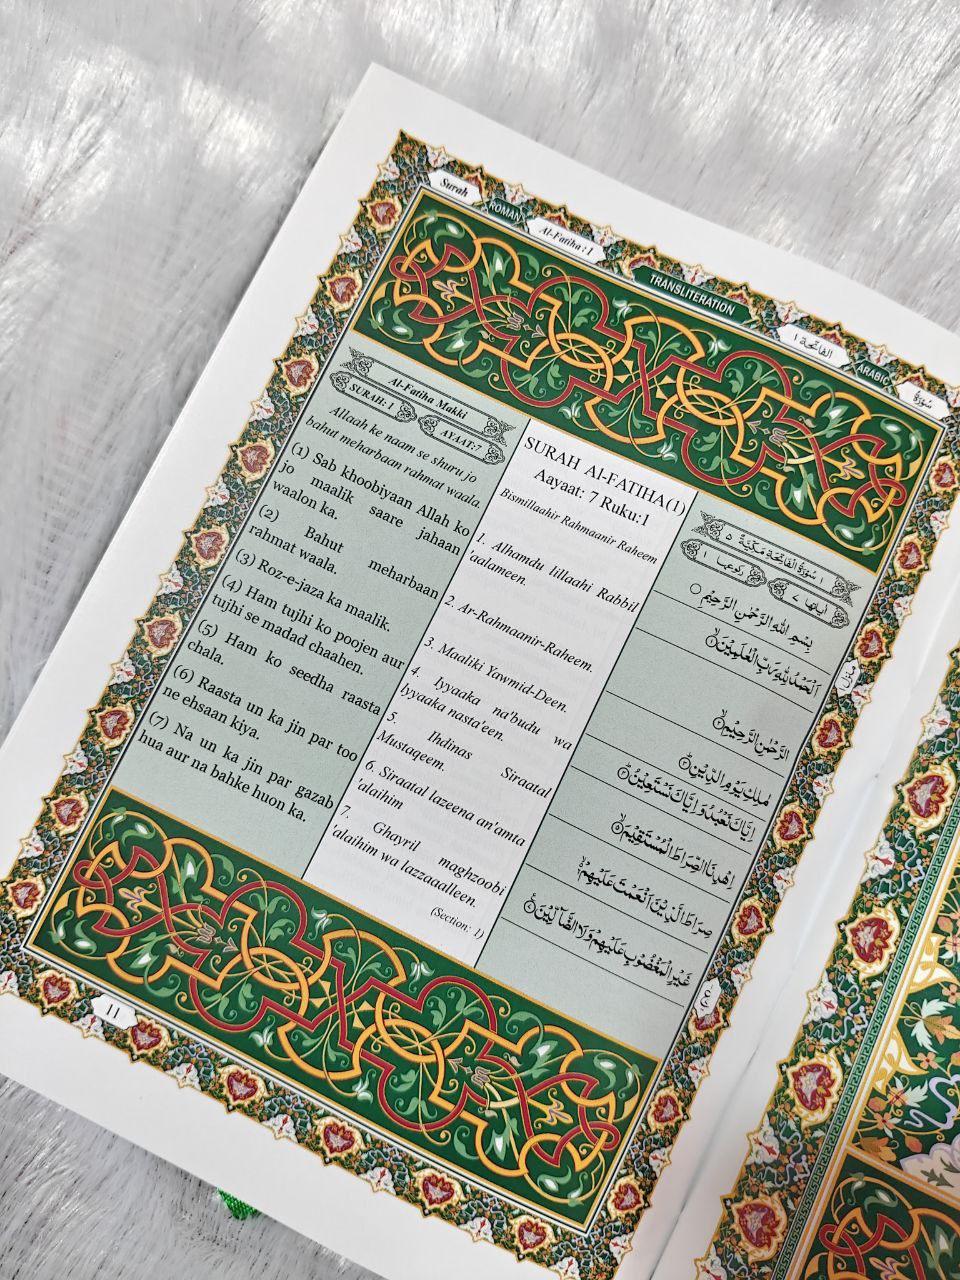 Surah
ROMAN
Al-Fatiha : 1
TRANSLITERATION
الفَاتِحَة ١
ARABIC
سُوْرَةُ
Al-Fatiha Makki
SURAH: 1
AYAAT:7
Allaah ke naam se shuru jo
bahut meharbaan rahmat waala.
(1) Sab khoobiyaan Allah ko
jo maalik saare jahaan
waalon ka.
(2) Bahut meharbaan
rahmat waala.
(3) Roz-e-jaza ka maalik.
(4) Ham tujhi ko poojen aur
tujhi se madad chaahen.
(5) Ham ko seedha raasta
chala.
(6) Raasta un ka jin par too
ne ehsaan kiya.
(7) Na un ka jin par gazab
hua aur na bahke huon ka.
SURAH Al-FATIHA(1)
Aayaat: 7 Ruku:1
Bismillaahir Rahmaanir Raheem
1. Alhamdu lillaahi Rabbil
'aalameen.
2. Ar-Rahmaanir-Raheem.
3. Maaliki Yawmid-Deen.
4. Iyyaaka na'budu wa
lyyaaka nasta'een.
5. Ihdinas Siraatal
Mustaqeem.
6. Siraatal lazeena an'amta
'alaihim
7. Ghayril maghzoobi
'alaihim wa lazzaaalleen.
(Section: 1)
١ سُوْرَةُ الْفَاتِحَةِ مَكِّيَّةٌ ٥
اٰیاتها ٧
رکوعها ١
بِسْمِ اللّٰهِ الرَّحْمٰنِ الرَّحِيْمِ ○
اَلْحَمْدُ لِلّٰهِ رَبِّ الْعٰلَمِيْنَۙ‏ ١
الرَّحْمٰنِ الرَّحِيْمِۙ ٢
مٰلِكِ يَوْمِ الدِّيْنِؕ ٣
اِيَّاكَ نَعْبُدُ وَ اِيَّاكَ نَسْتَعِيْنُؕ ٤
اِهْدِنَا الصِّرَاطَ الْمُسْتَقِيْمَۙ ٥
صِرَاطَ الَّذِيْنَ اَنْعَمْتَ عَلَيْهِمْ ۙ ٦
غَيْرِ الْمَغْضُوْبِ عَلَيْهِمْ وَ لَا الضَّآلِّيْنَ ٧
11